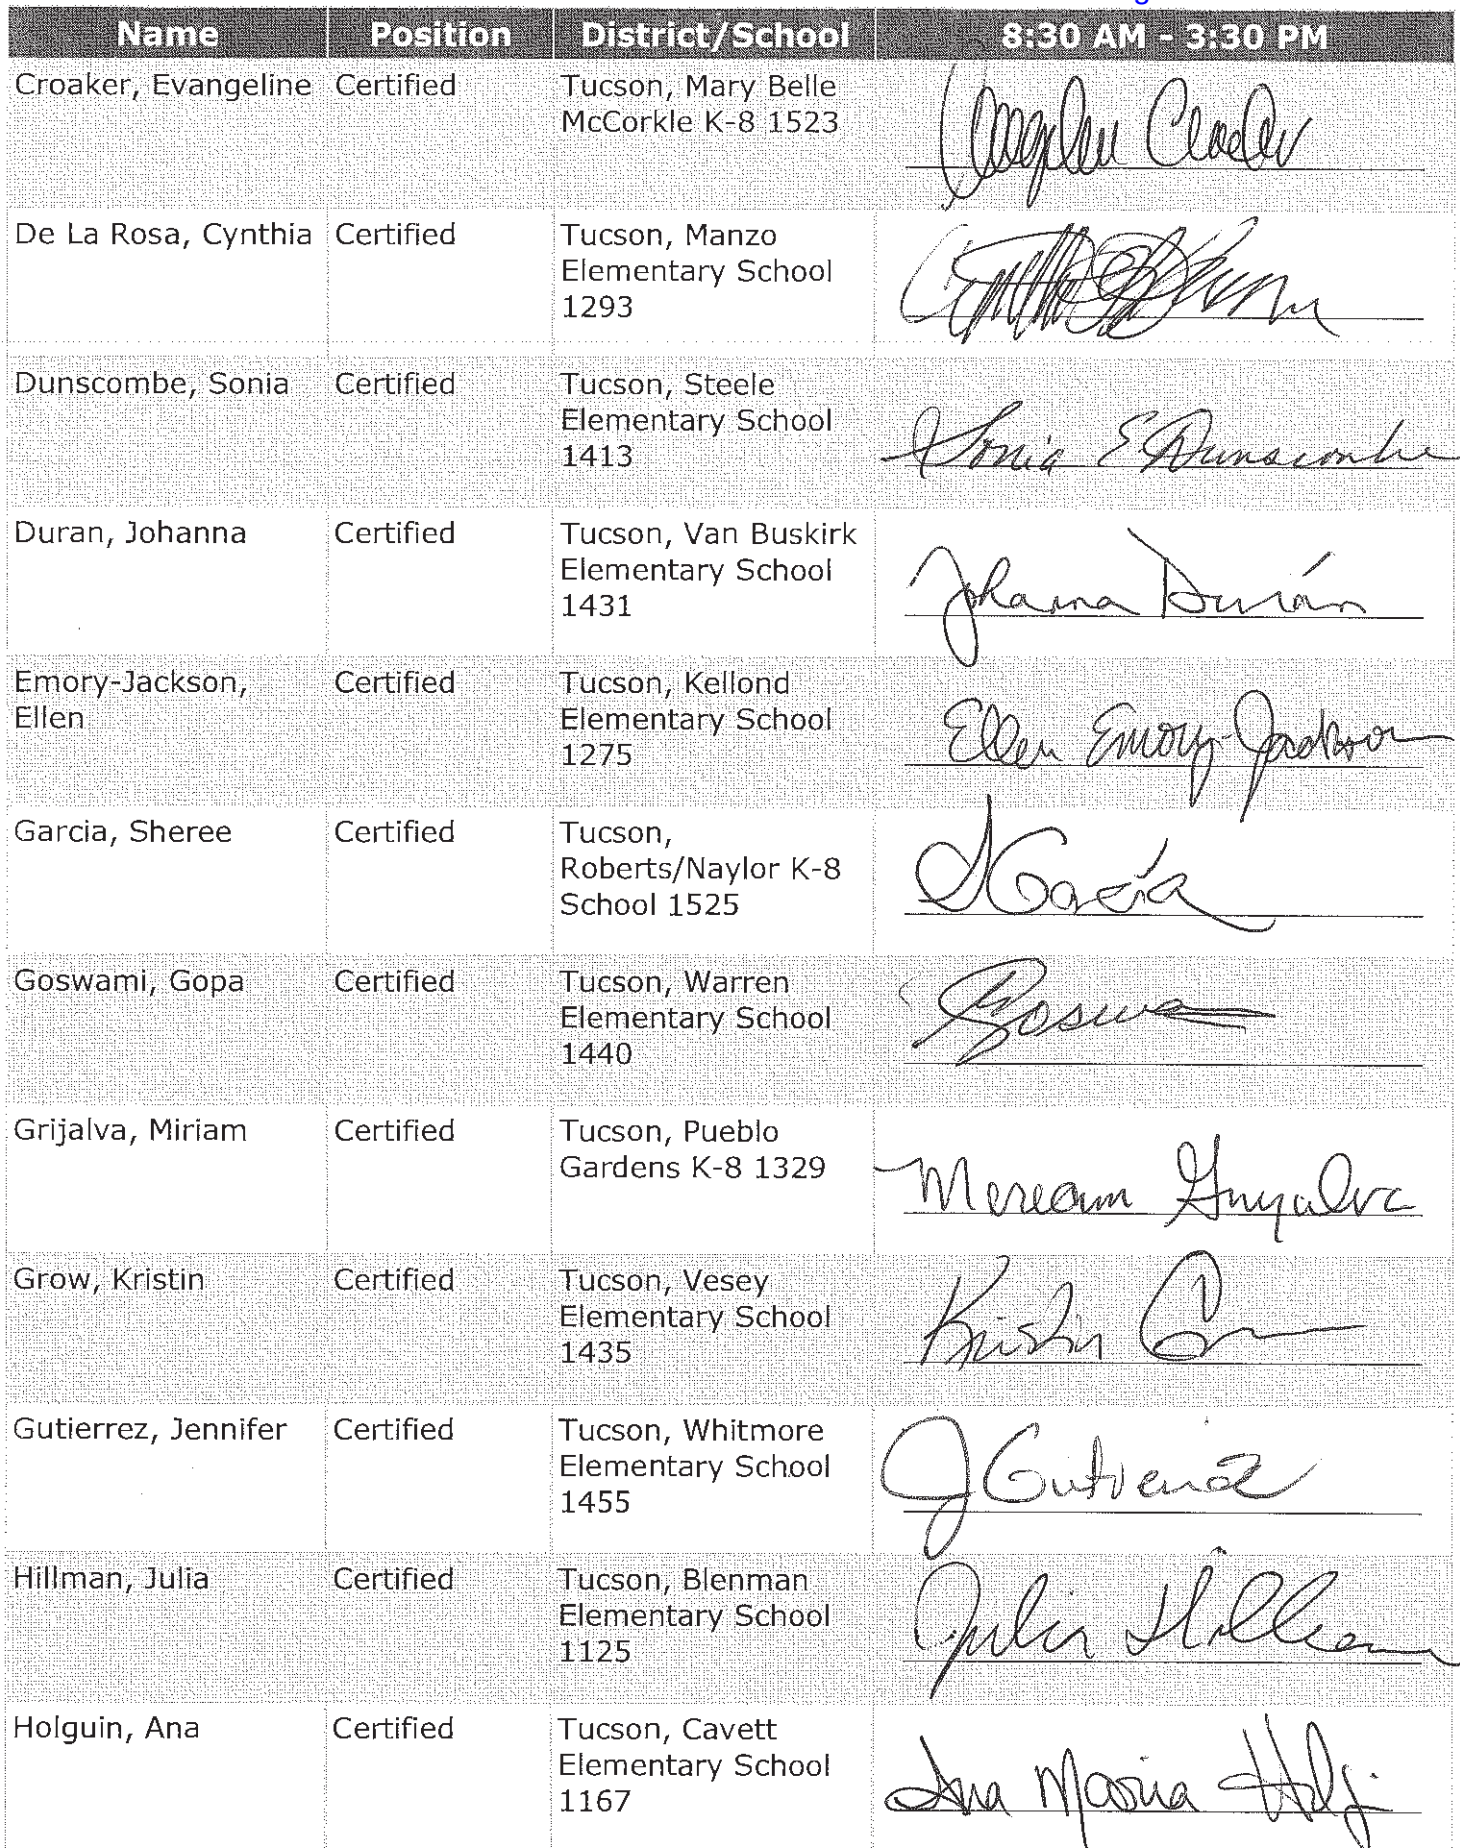 Name Position District/School 8:30 AM - 3:30 PM
Croaker, Evangeline Certified Tucson, Mary Belle
McCorkle K-8 1523
De La Rosa, Cynthia Certified Tucson, Manzo
Elementary School
1293
Dunscombe, Sonia Certified Tucson, Steele
Elementary School
1413
Sonia E Dunscombe
Duran, Johanna Certified Tucson, Van Buskirk
Elementary School
1431
Johanna Durán
Emory-Jackson, Certified Tucson, Kellond
Ellen Elementary School
1275
Ellen Emory-Jackson
Garcia, Sheree Certified Tucson,
Roberts/Naylor K-8
School 1525
S Garcia
Goswami, Gopa Certified Tucson, Warren
Elementary School
1440
Grijalva, Miriam Certified Tucson, Pueblo
Gardens K-8 1329
Grijalva
Grow, Kristin Certified Tucson, Vesey
Elementary School
1435
Kristin
Gutierrez, Jennifer Certified Tucson, Whitmore
Elementary School
1455
J Gutierrez
Hillman, Julia Certified Tucson, Blenman
Elementary School
1125
Julia Hillman
Holguin, Ana Certified Tucson, Cavett
Elementary School
1167
Ana Maria